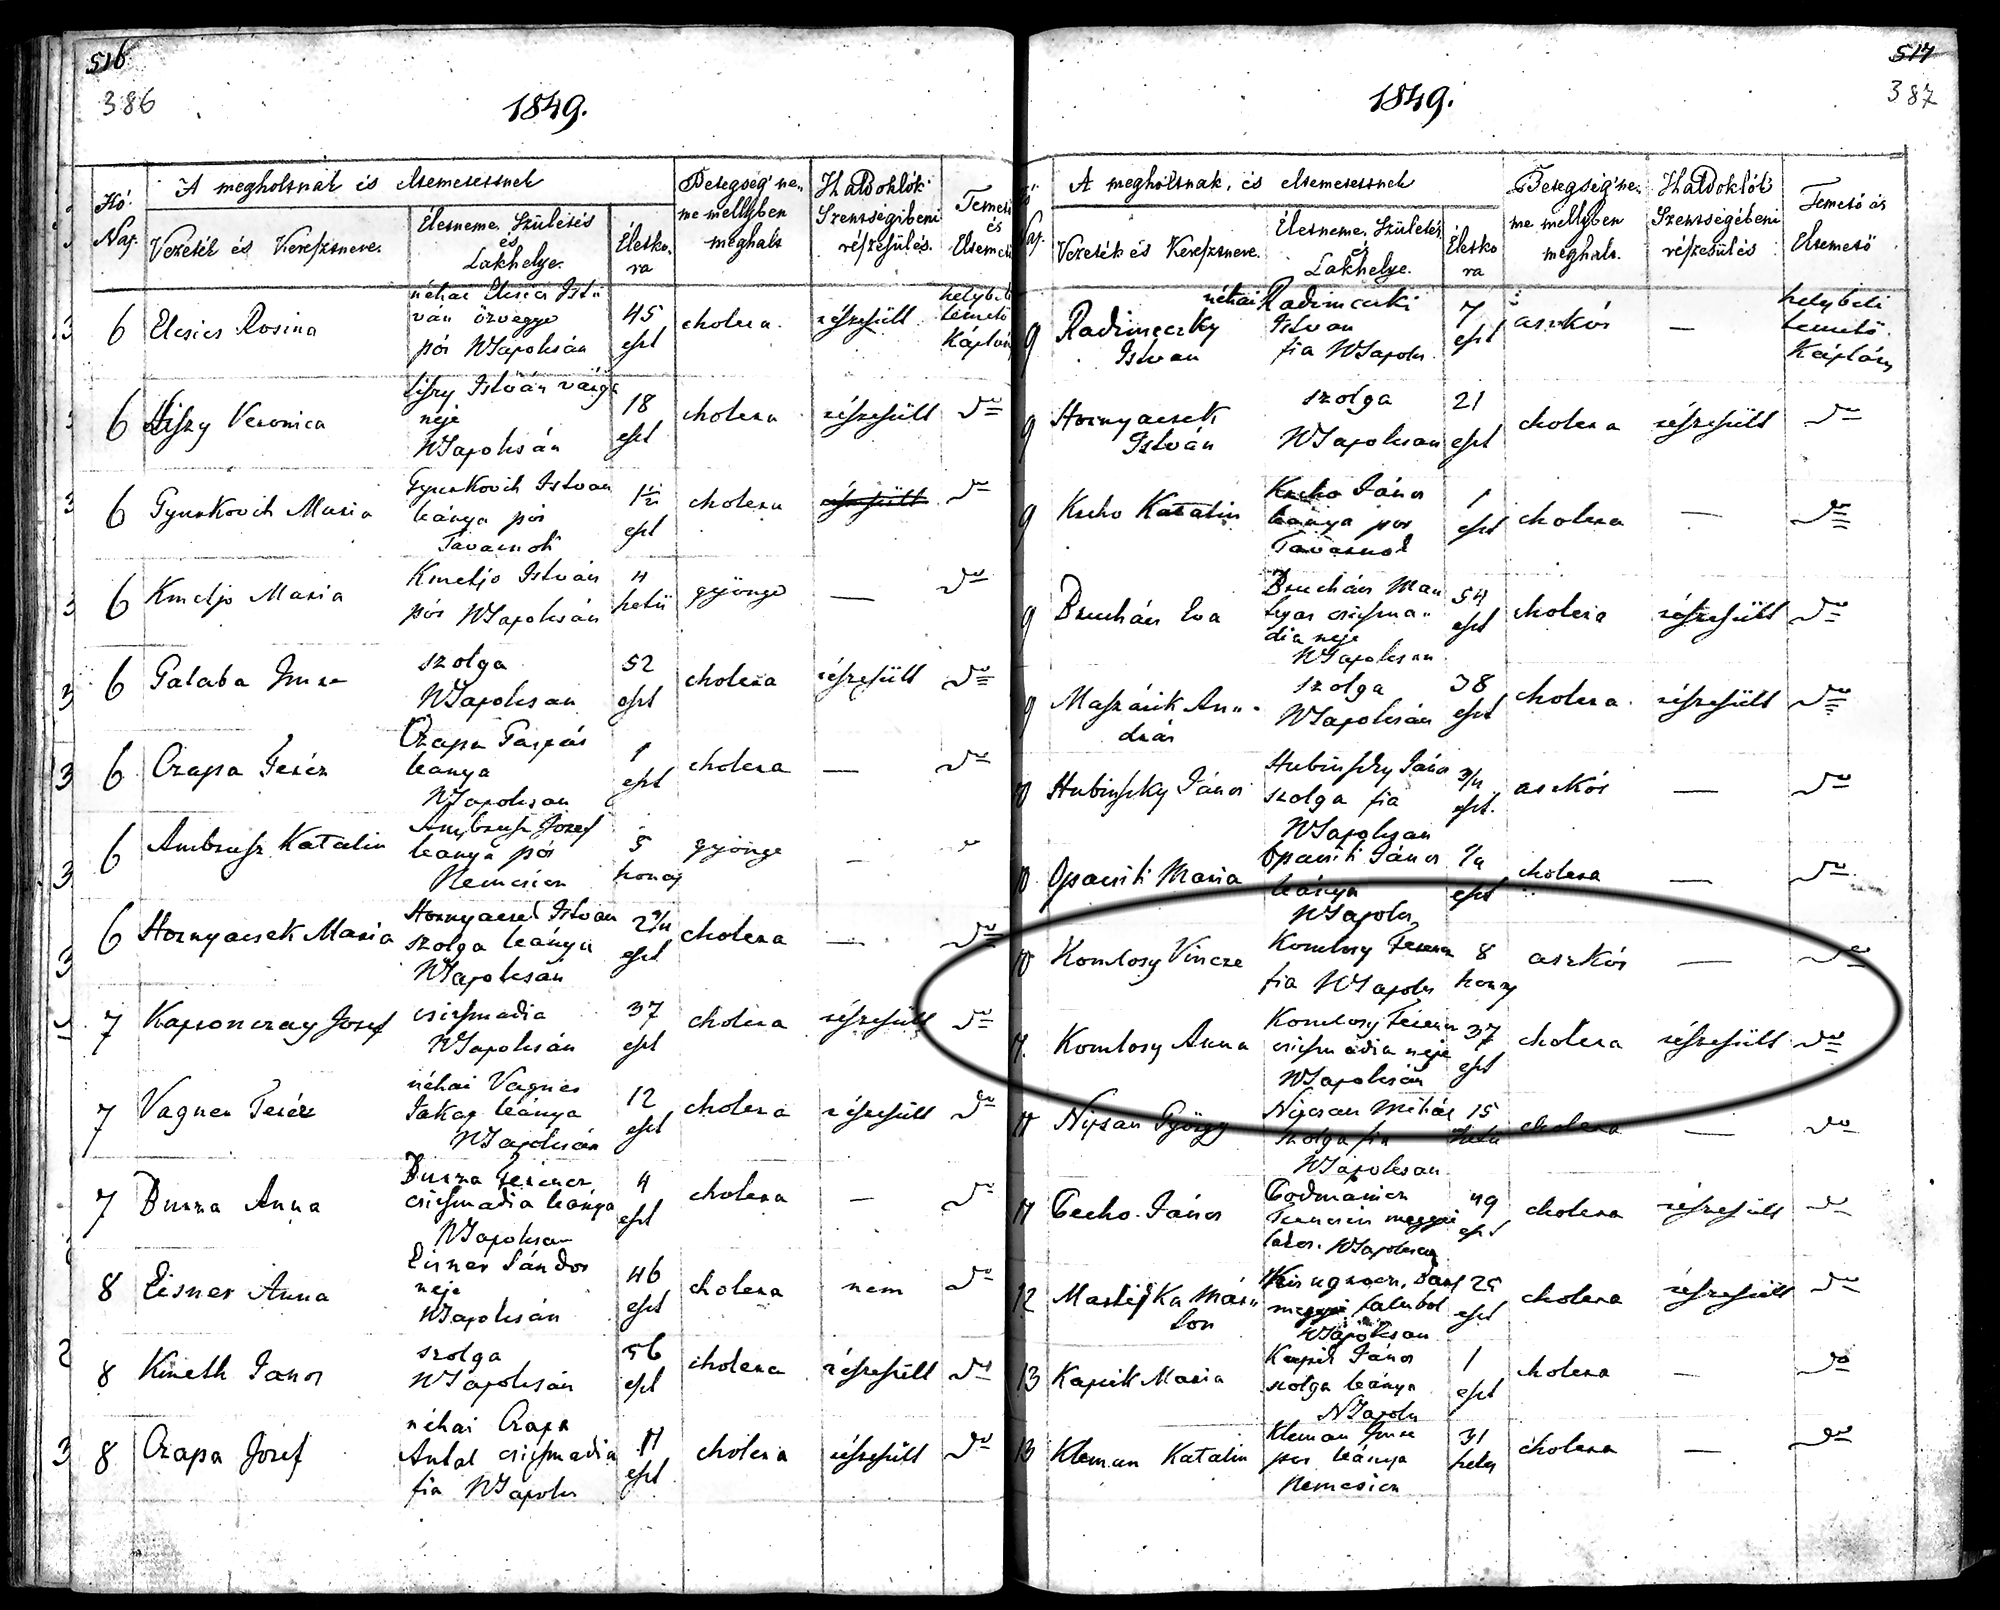 516
386
1849.
Hó
Nap.
A megholtnak és eltemetettnek
Vezeték és Keresztneve.
Életneme, Születés
és
Lakhelye.
Életko-
ra
Betegség' ne-
me mellyben
meghalt
Haldoklók
Szentségibeni
részesülés.
Temető
és
6 Elcsics Rosina
néhai Elcsics Ist-
ván özvegye
pór NTapolcsán
45
eszt
cholera.
részesült
helybeli
temető
Káplán
6 Liszy Veronica
Liszy István varga
neje
NTapolcsán
18
eszt
cholera
részesült
do
6 Gyurkovich Maria
Gyurkovich Istvan
leánya pór
1½
eszt
cholera
részesült
do
6 Kmetyo Maria
Kmetyo István
pór NTapolcsán
4
hetü
gyönge
—
do
6 Galaba Imre
szolga
NTapolcsan
52
eszt
cholera
részesült
do
6 Czapa Teréz
Czapa Gaspár
leánya
NTapolcsan
1
eszt
cholera
—
do
6 Ambrusz Katalin
Ambrusz Jozef
leánya pór
5
gyönge
—
6 Hornyacsek Maria
Hornyacsek Istvan
szolga leánya
NTapolcsan
2 3/4
eszt
cholera
—
do
7 Kapronczay Josef
csiszmadia
NTapolcsán
37
eszt
cholera
részesült
do
7 Vagner Teréz
néhai Vagner
Jakap leánya
NTapolcsán
12
eszt
cholera
részesült
do
7 Burza Anna
Burza Ferencz
csiszmadia leánya
NTapolcsan
4
eszt
cholera
—
do
8 Eisner Anna
Eisner Sándor
neje
NTapolcsán
46
eszt
cholera
nem
do
8 Kineth Janos
szolga
NTapolcsán
56
eszt
cholera
részesült
do
8 Czapa Józef
néhai Czapa
Antal csiszmadia
fia NTapolcs
11
eszt
cholera
részesült
do
517
387
1849.
A megholtnak, és eltemetettnek
Vezeték és Keresztneve.
Életneme, Születés
és
Lakhelye.
Életko
ra
Betegség' ne-
me mellyben
meghalt.
Haldoklók
Szentségébeni
részesülés
Temető és
Eltemető
9 Radimeczky
Istvan
néhai Radimecski
Istvan
fia NTapolcs.
7
eszt
aszkór
—
helybeli
temető
Káplán
9 Hornyacsek
István
szolga
NTapolcsan
21
eszt
cholera
részesült
do
9 Krcho Katalin
Krcho János
leánya por
1
eszt
cholera
—
do
9 Bruchács Eva
Bruchács Man
csiszma-
dia neje
NTapolcsan
54
eszt
cholera
részesült
do
9 Maszárik An-
drás
szolga
NTapolcsán
38
eszt
cholera.
részesült
do
10 Hubinszky János
Hubinszky János
szolga fia
NTapolcsan
3/4
eszt.
aszkór
—
do
10 Opacsiti Maria
Opacsiti János
leánya
NTapolcs
eszt
cholera
—
do
10 Komlosy Vincze
Komlosy Ferencz
fia NTapolcs
8
hony
aszkór
—
do
11. Komlosy Anna
Komlosy Ferencz
csiszmadia neje
NTapolcsán
37
eszt
cholera
részesült
do
11 Nipsan György
Nipsan Mihál
szolga fia
NTapolcsan
15
hetü
cholera
—
do
11 Czecho János
Trencsén megyei
lakos. NTapolcsan
49
eszt
cholera
részesült
do
12 
megyei faluból
NTapolcsan
25
eszt
cholera
részesült
do
13 Kapcik Maria
Kapcik János
szolga leánya
NTapolcs
1
eszt
cholera
—
do
13 Kleman Katalin
Kleman Imre
por leánya
31
hetes
cholera
—
do